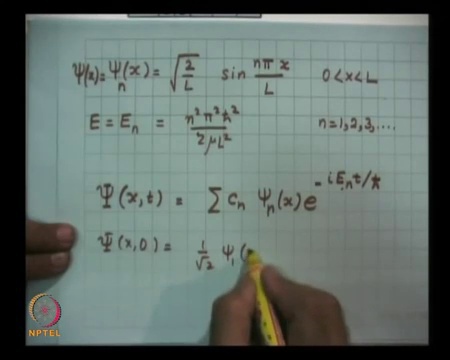 ψ(x) = ψₙ(x) = √(2/L) sin nπx/L 0<x<L
E = Eₙ = n²π²ħ²/2μL² n=1,2,3,....
Ψ(x,t) = Σ cₙ ψₙ(x) e^(-iEₙt/ħ)
Ψ(x,0) = 1/√2 ψ₁(
NPTEL